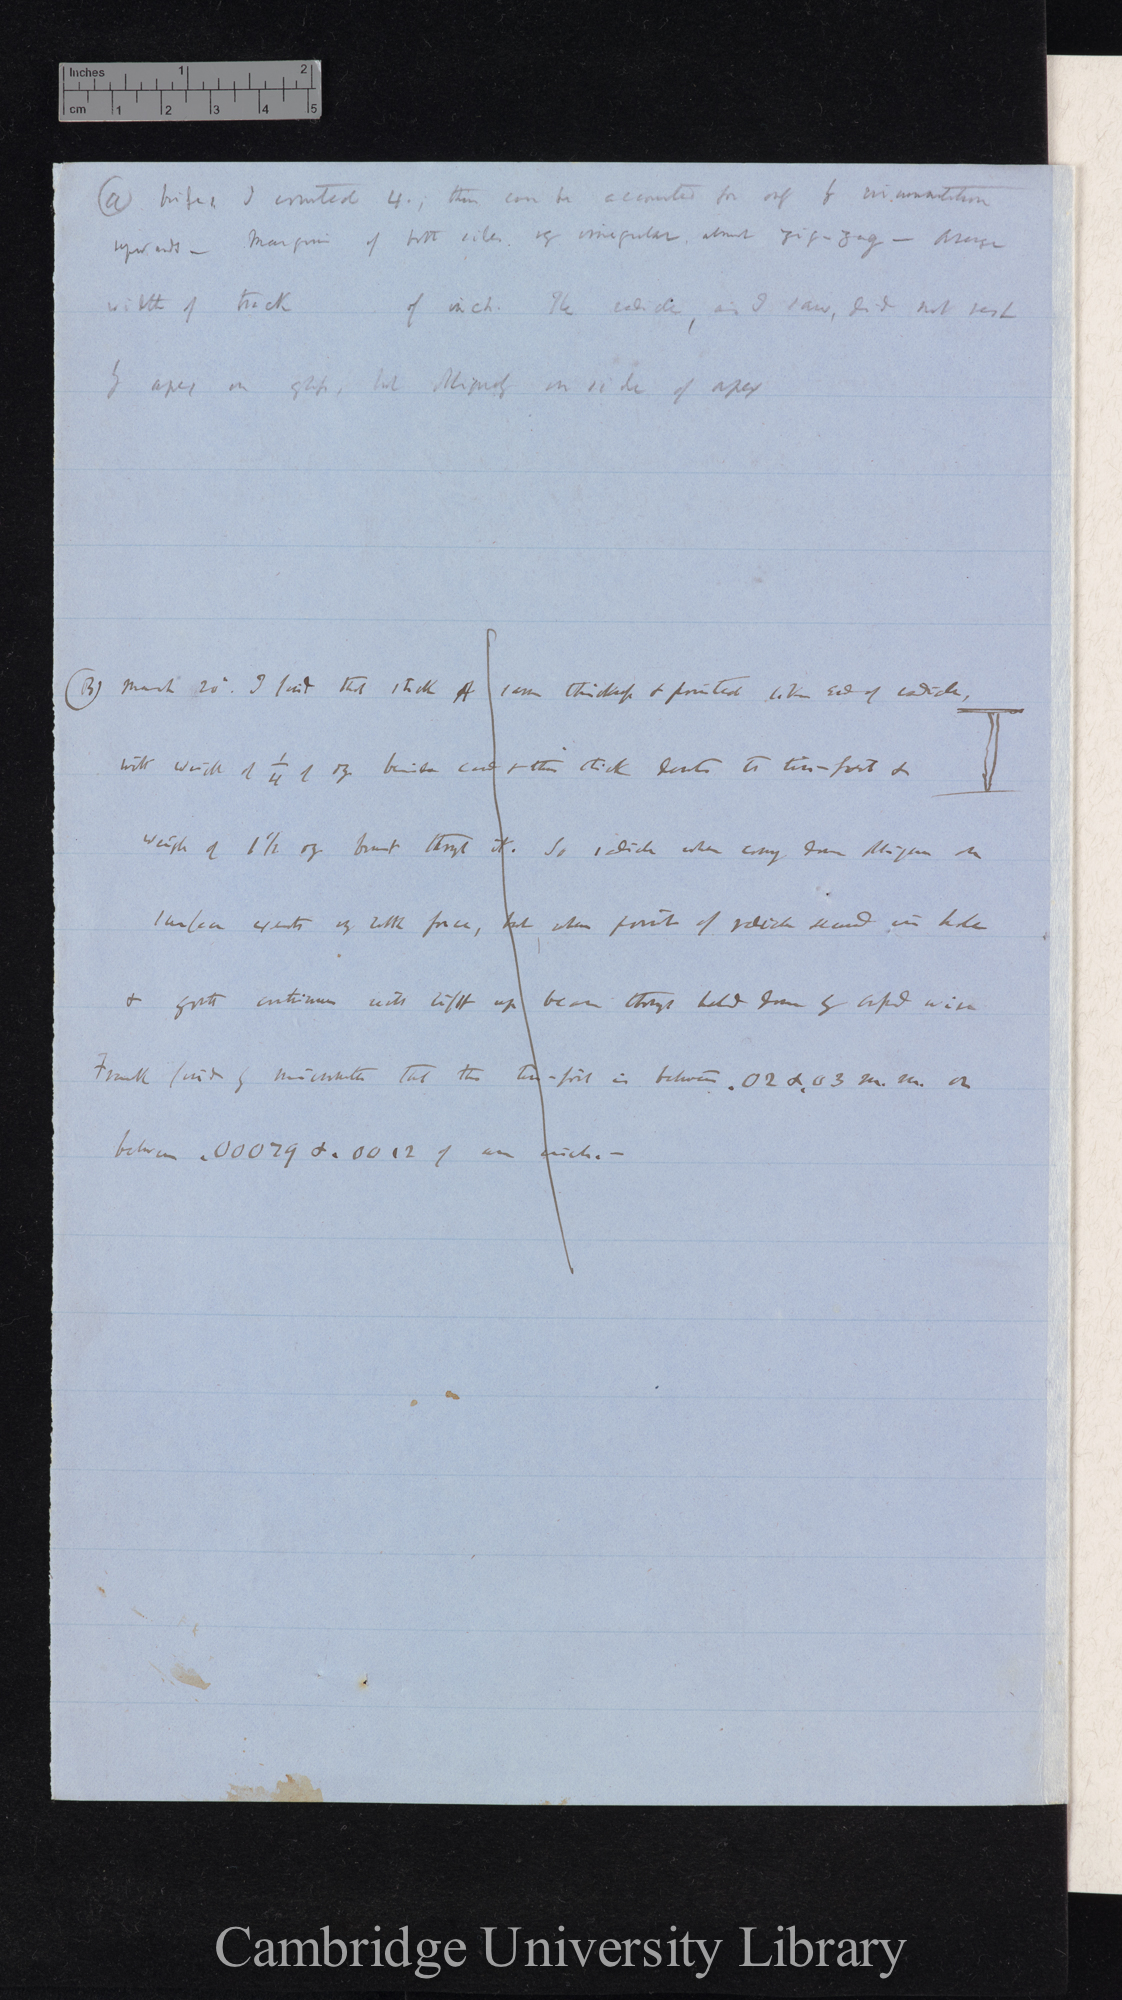 Inches 1 2
cm 1 2 3 4 5
(a) I counted 4.; this can be accounted for only by circumnutation
upwards — Margin of both sides irregular, almost zig-zag — Average
width of track of inch. The radicle, as I saw, did not rest
by apex on glass, but obliquely on side of apex
(B) March 20. I find that stick A same thickness & pointed like end of radicle,
with weight of 1/4 of oz card & this stick to tin-foil &
weight of oz burst through it. So radicle when down oblique on
surface exerts very little force, but when point of radicle in hole
& growth continues will lift up beam though held down by wire
Frank finds by micrometer that the tin-foil is between .02 & .03 m.m. or
between .00079 & .0012 of an inch. —
Cambridge University Library